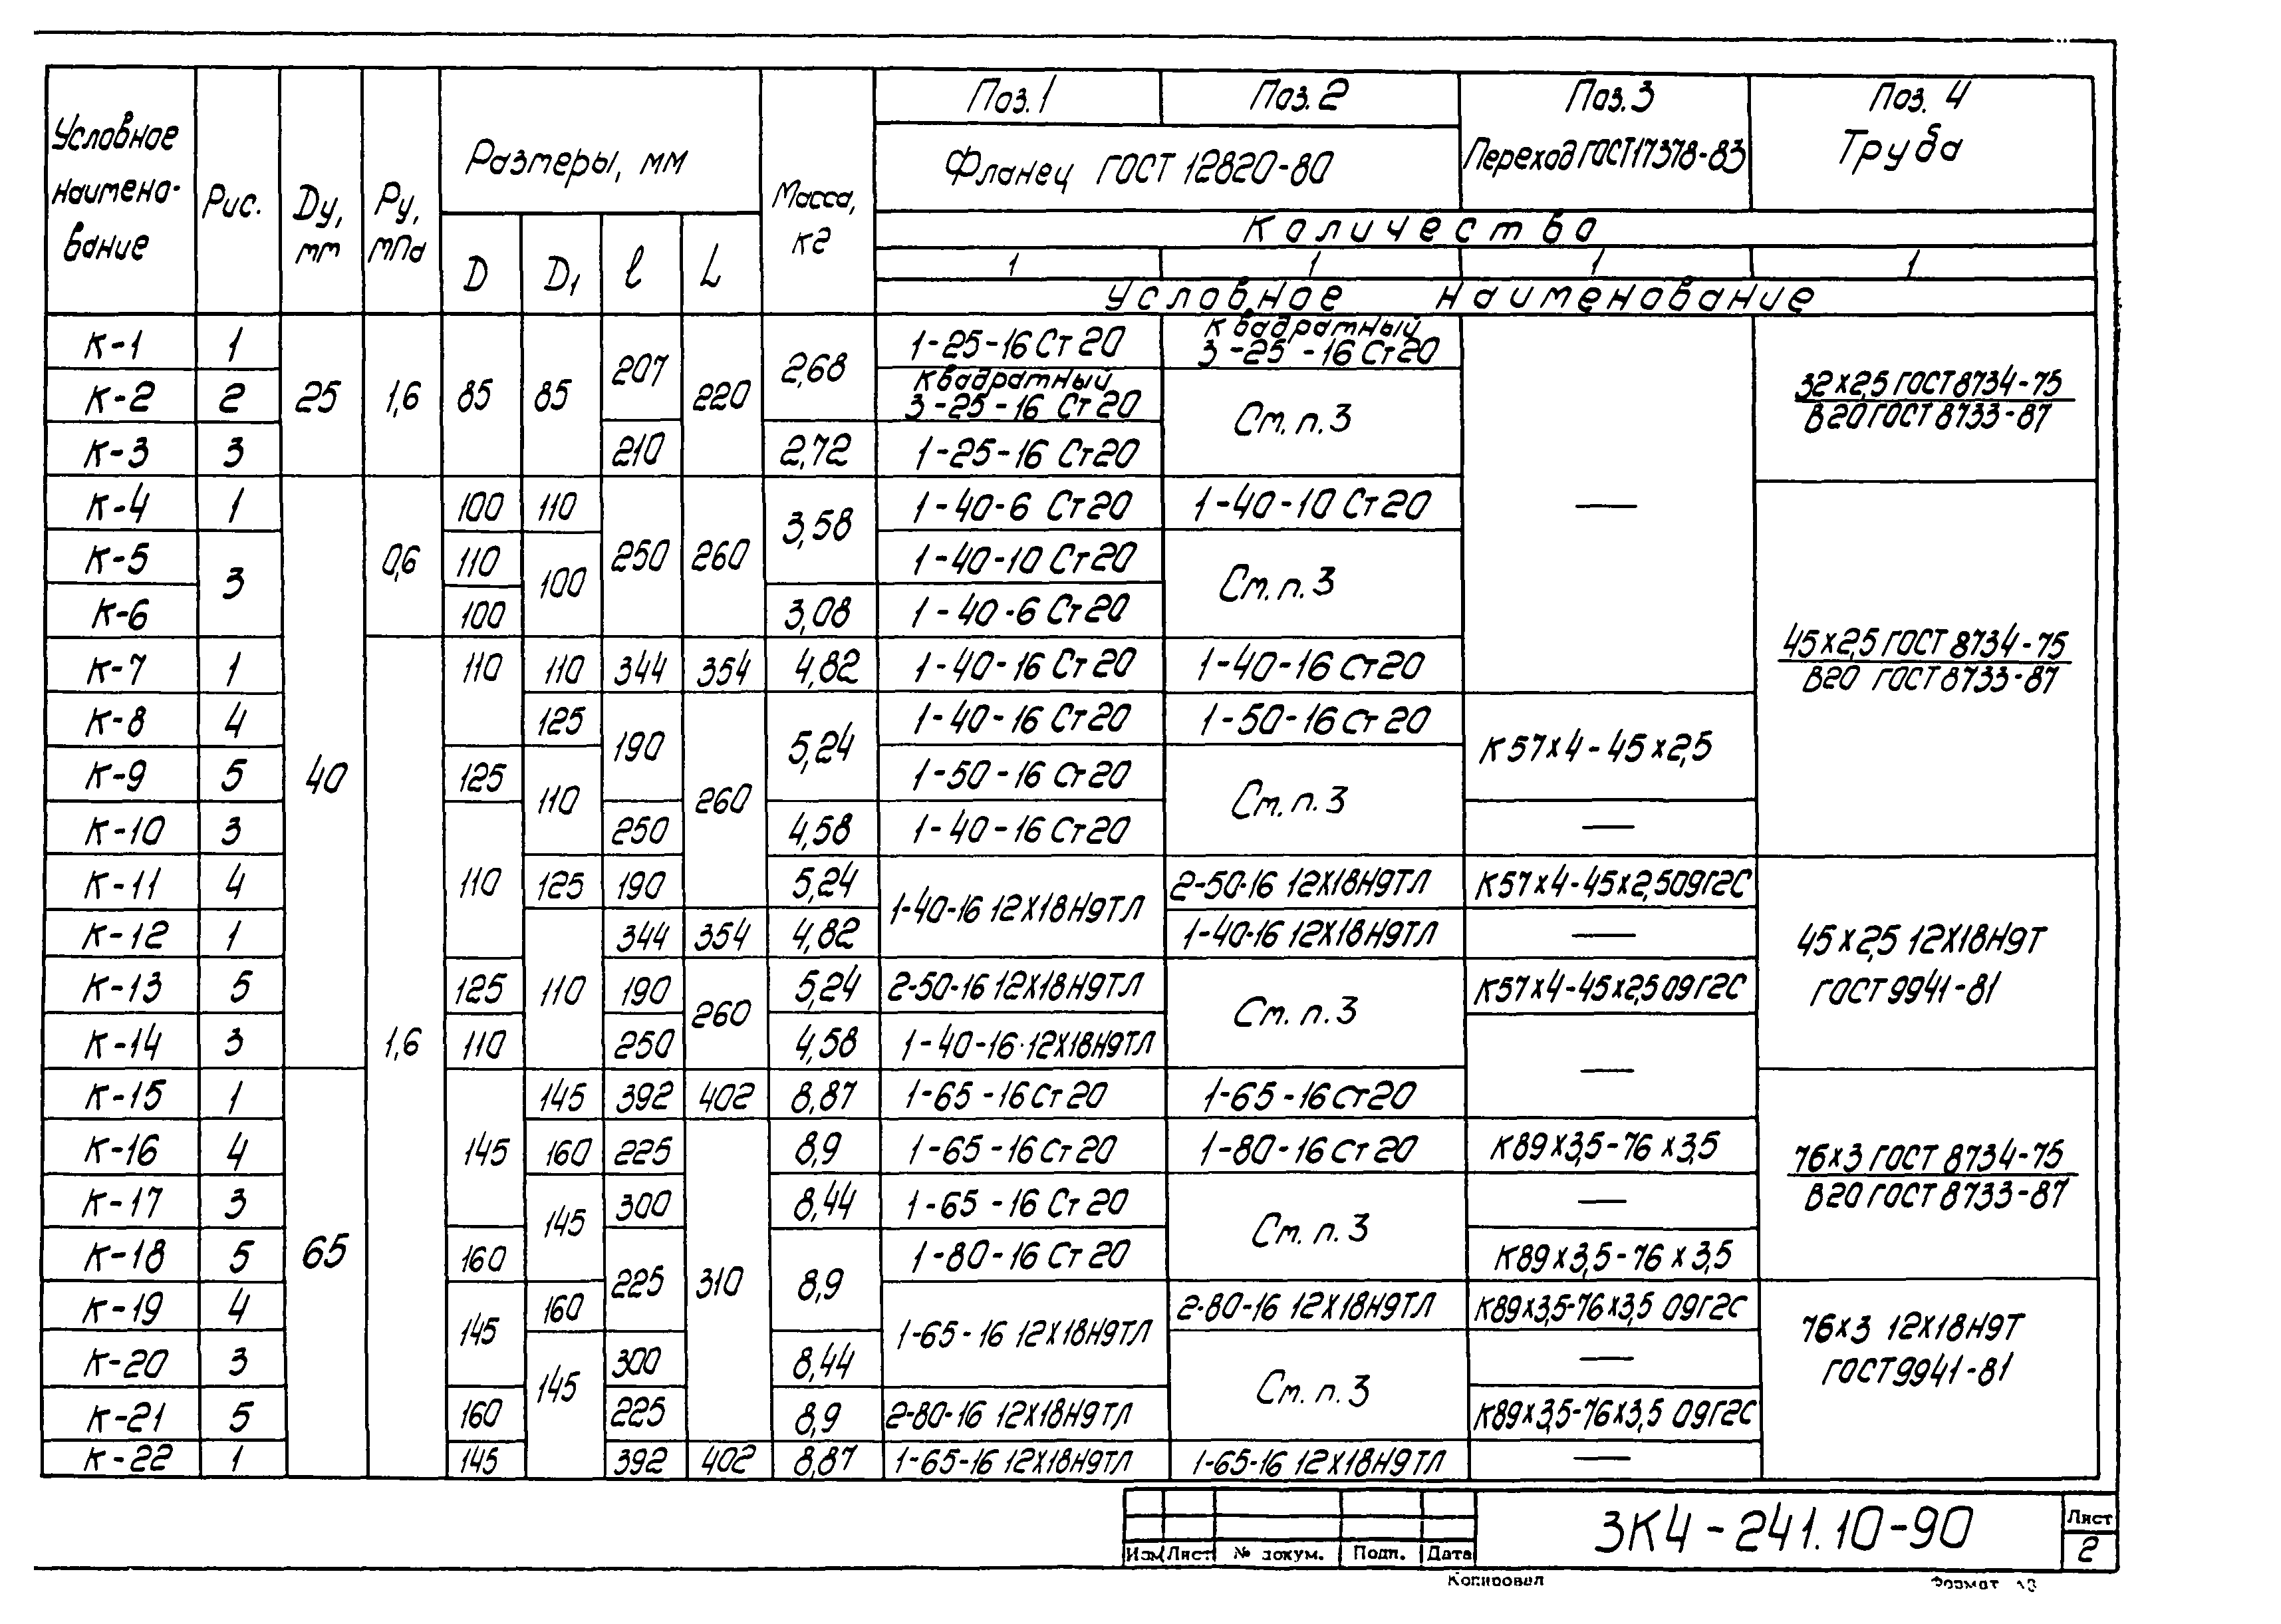 Условное наименование Рис. Dу, мм Ру, мПа Размеры, мм Масса, кг Поз.1 Поз.2 Поз.3 Поз. 4
Фланец ГОСТ 12820-80 Переход ГОСТ 17378-83 Труба
D D1 ℓ L
Количество
1 1 1 1
Условное наименование
К-1 1 25 1,6 85 85 207 220 2,68 1-25-16 Ст 20 Квадратный 3-25-16 Ст 20 — 32х2,5 ГОСТ 8734-75
В20 ГОСТ 8733-87
К-2 2 Квадратный 3-25-16 Ст 20 См. п. 3
К-3 3 210 2,72 1-25-16 Ст 20
К-4 1 40 0,6 100 110 250 260 3,58 1-40-6 Ст 20 1-40-10 Ст 20 45х2,5 ГОСТ 8734-75
В20 ГОСТ 8733-87
К-5 3 110 100 1-40-10 Ст 20 См. п. 3
К-6 100 3,08 1-40-6 Ст 20
К-7 1 1,6 110 110 344 354 4,82 1-40-16 Ст 20 1-40-16 Ст 20
К-8 4 125 190 260 5,24 1-40-16 Ст 20 1-50-16 Ст 20 К57х4-45х2,5
К-9 5 125 110 1-50-16 Ст 20 См. п. 3
К-10 3 110 250 4,58 1-40-16 Ст 20 —
К-11 4 125 190 5,24 1-40-16 12Х18Н9ТЛ 2-50-16 12Х18Н9ТЛ К57х4-45х2,5 09Г2С 45х2,5 12Х18Н9Т
ГОСТ 9941-81
К-12 1 110 344 354 4,82 1-40-16 12Х18Н9ТЛ —
К-13 5 125 190 260 5,24 2-50-16 12Х18Н9ТЛ См. п. 3 К57х4-45х2,5 09Г2С
К-14 3 110 250 4,58 1-40-16-12Х18Н9ТЛ —
К-15 1 65 145 145 392 402 8,87 1-65-16 Ст 20 1-65-16 Ст 20 76х3 ГОСТ 8734-75
В20 ГОСТ 8733-87
К-16 4 160 225 310 8,9 1-65-16 Ст 20 1-80-16 Ст 20 К89х3,5-76х3,5
К-17 3 145 300 8,44 1-65-16 Ст 20 См. п. 3 —
К-18 5 160 225 8,9 1-80-16 Ст 20 К89х3,5-76х3,5
К-19 4 145 160 1-65-16 12Х18Н9ТЛ 2-80-16 12Х18Н9ТЛ К89х3,5-76х3,5 09Г2С 76х3 12Х18Н9Т
ГОСТ 9941-81
К-20 3 145 300 8,44 См. п. 3 —
К-21 5 160 225 8,9 2-80-16 12Х18Н9ТЛ К89х3,5-76х3,5 09Г2С
К-22 1 145 392 402 8,87 1-65-16 12Х18Н9ТЛ 1-65-16 12Х18Н9ТЛ —
ЗК4-241.10-90
Лист
2
Изм Лист № докум. Подп. Дата
Копировал Формат А3